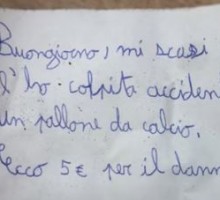 Buongiorno, mi scusi
l'ho colpita acciden
un pallone da calcio.
Ecco 5€ per il dann